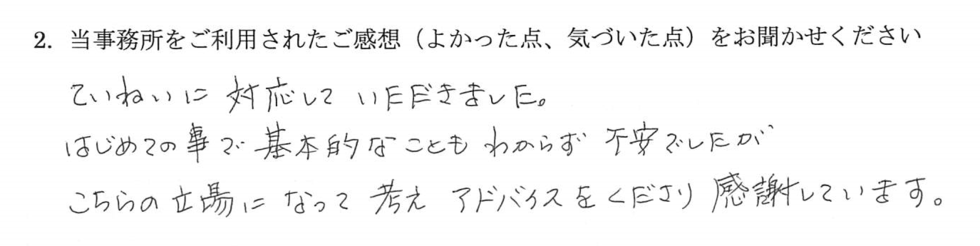 2. 当事務所をご利用されたご感想（よかった点、気づいた点）をお聞かせください
ていねいに対応していただきました。
はじめての事で基本的なこともわからず不安でしたが
こちらの立場になって考えアドバイスをくださり感謝しています。